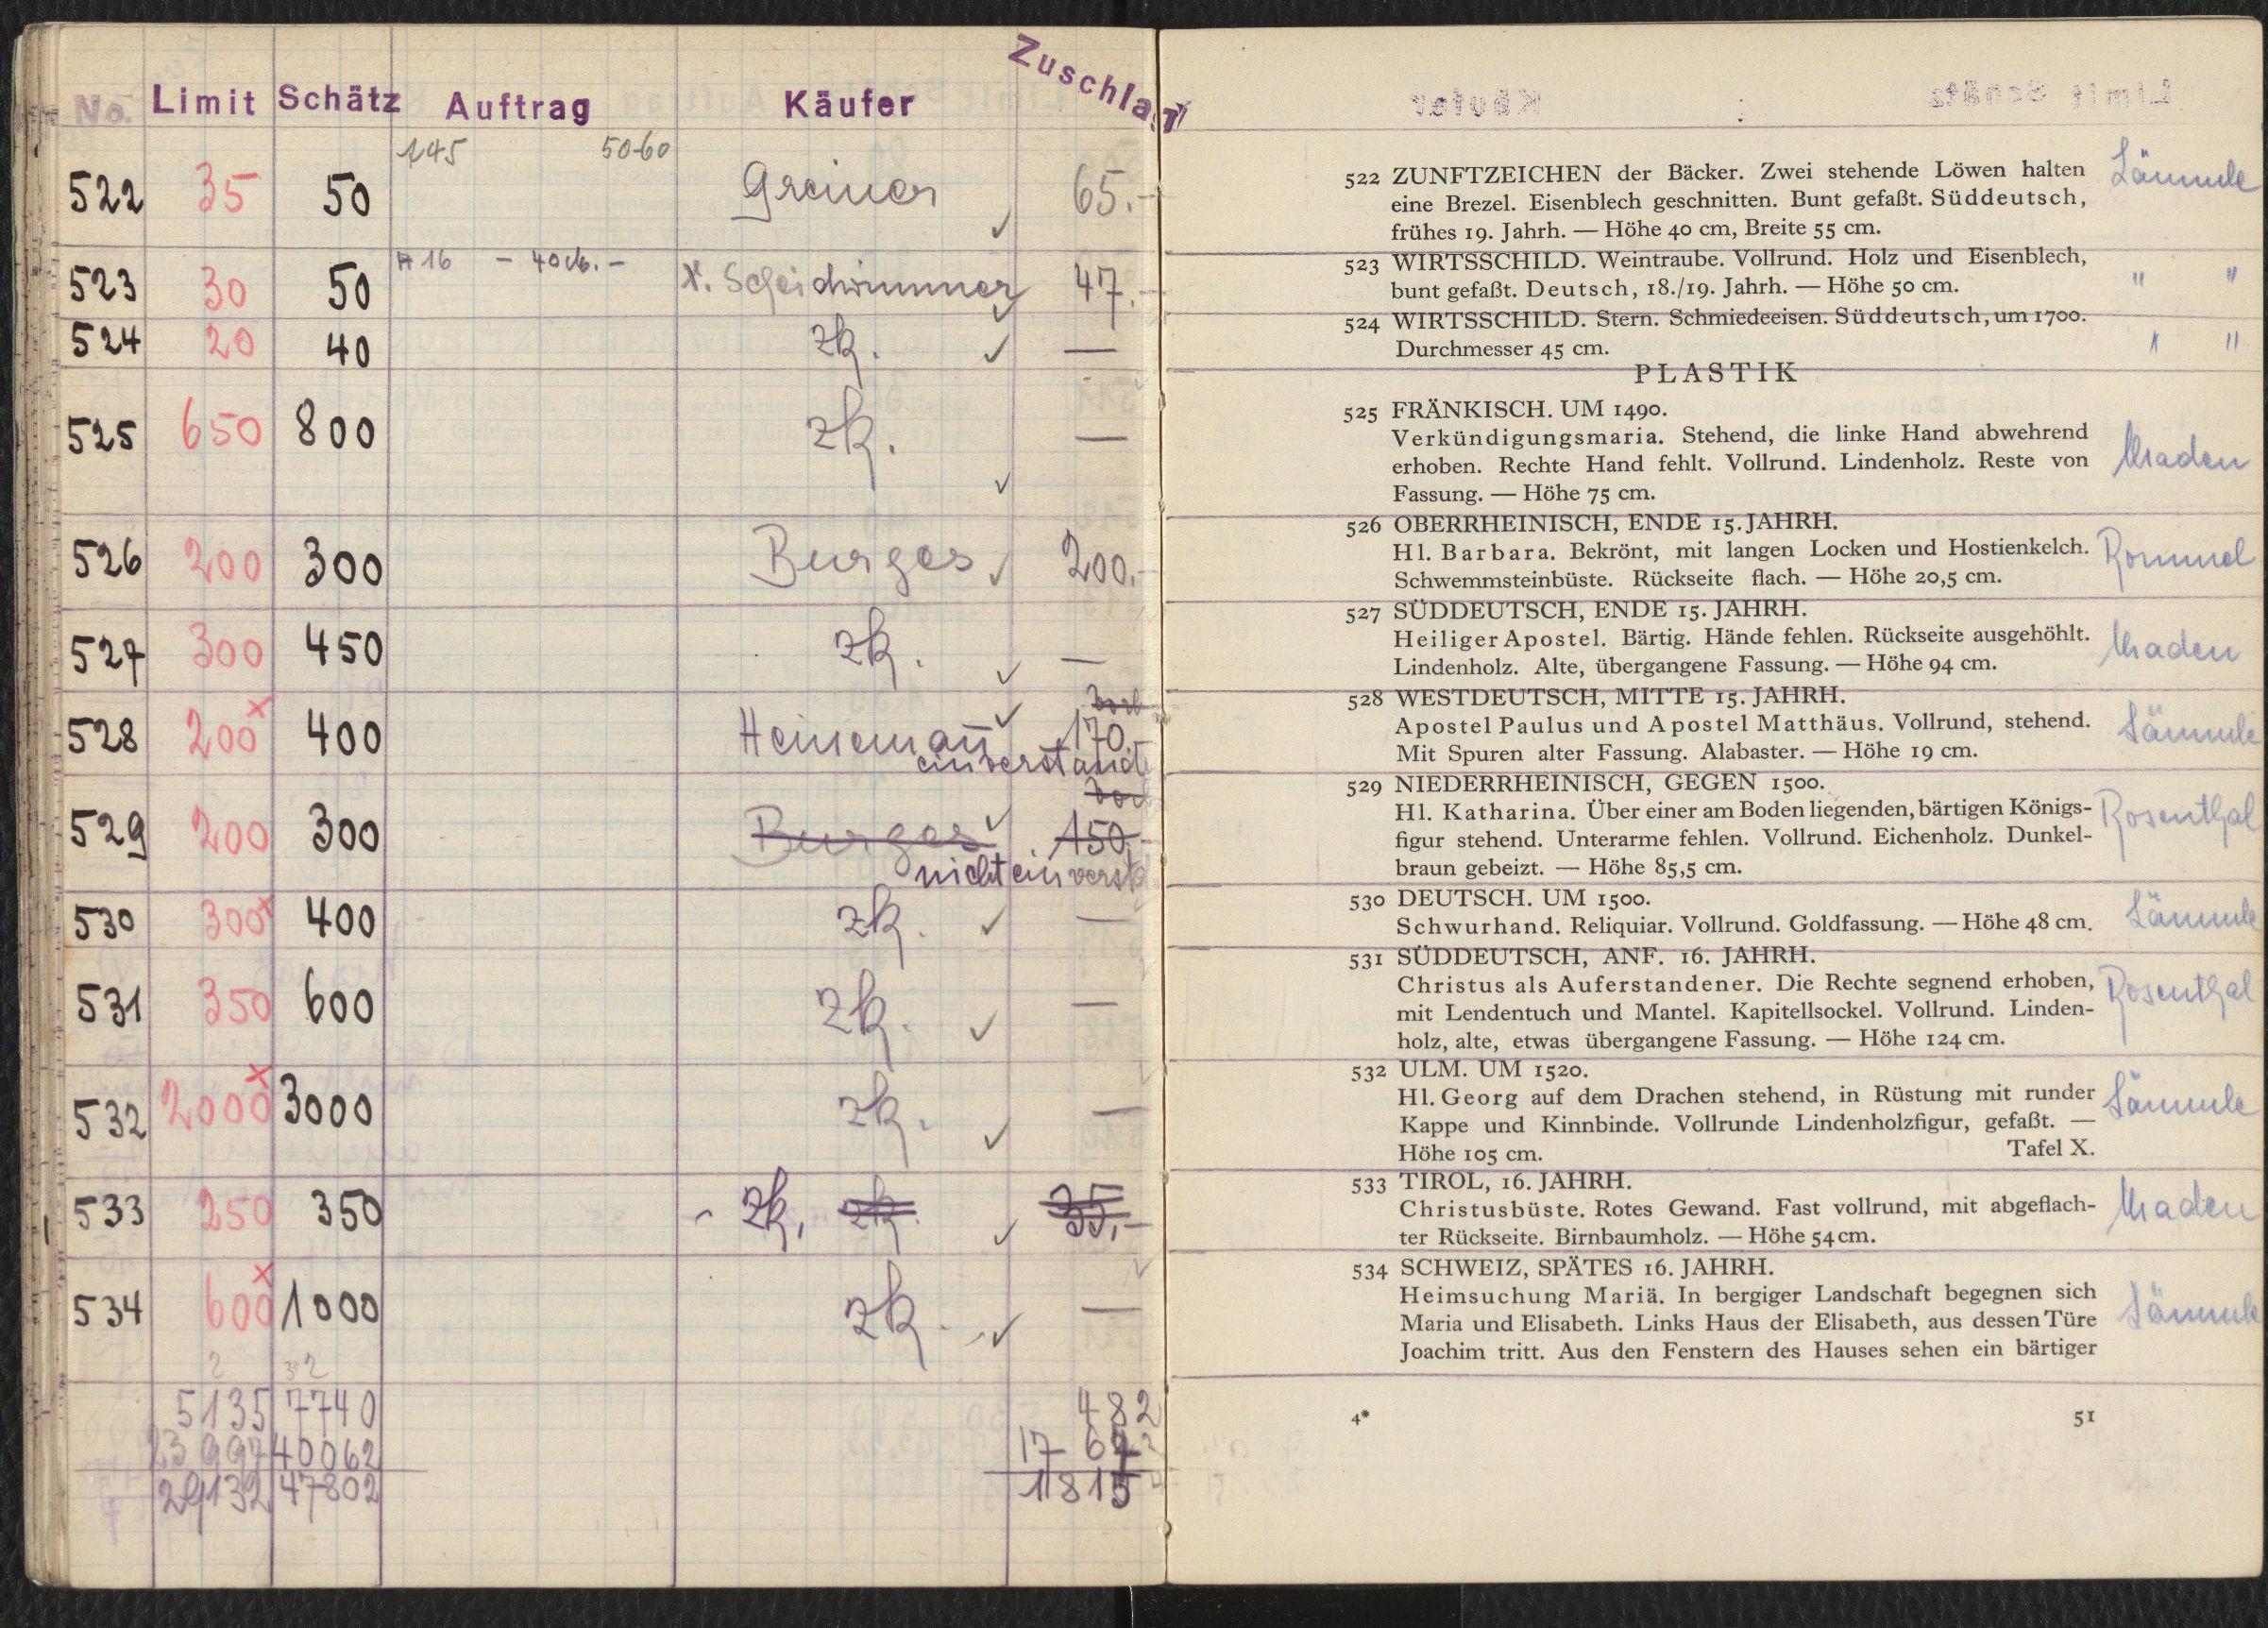 No. Limit Schätz Auftrag Käufer Zuschlag
145 50-60
522 35 50 Greiner 65.-
16 - 40 -
523 30 50 X. Scheidwimmer 47.-
524 20 40 zk. —
525 650 800 zk. —
526 200 300 Burges 200.-
527 300 450 zk. —
528 200 x 400 Heinemann 170.-
einverstand
529 200 300 Burges 150.-
nicht einverst
530 300 x 400 zk. —
531 350 600 zk. —
532 2000 x 3000 zk. —
533 250 350 - zk. zk. 35.-
534 600 x 1000 zk. —
5135 7740 482
23997 40062
29132 47802
Käufer Limit Schätz
522 ZUNFTZEICHEN der Bäcker. Zwei stehende Löwen halten Lämmle
eine Brezel. Eisenblech geschnitten. Bunt gefaßt. Süddeutsch,
frühes 19. Jahrh. — Höhe 40 cm, Breite 55 cm.
523 WIRTSSCHILD. Weintraube. Vollrund. Holz und Eisenblech, " "
bunt gefaßt. Deutsch, 18./19. Jahrh. — Höhe 50 cm.
524 WIRTSSCHILD. Stern. Schmiedeeisen. Süddeutsch, um 1700. " "
Durchmesser 45 cm.
PLASTIK
525 FRÄNKISCH. UM 1490.
Verkündigungsmaria. Stehend, die linke Hand abwehrend
erhoben. Rechte Hand fehlt. Vollrund. Lindenholz. Reste von Maden
Fassung. — Höhe 75 cm.
526 OBERRHEINISCH, ENDE 15. JAHRH.
Hl. Barbara. Bekrönt, mit langen Locken und Hostienkelch. Rommel
Schwemmsteinbüste. Rückseite flach. — Höhe 20,5 cm.
527 SÜDDEUTSCH, ENDE 15. JAHRH.
Heiliger Apostel. Bärtig. Hände fehlen. Rückseite ausgehöhlt. Maden
Lindenholz. Alte, übergangene Fassung. — Höhe 94 cm.
528 WESTDEUTSCH, MITTE 15. JAHRH.
Apostel Paulus und Apostel Matthäus. Vollrund, stehend. Lämmle
Mit Spuren alter Fassung. Alabaster. — Höhe 19 cm.
529 NIEDERRHEINISCH, GEGEN 1500.
Hl. Katharina. Über einer am Boden liegenden, bärtigen Königs- Rosenthal
figur stehend. Unterarme fehlen. Vollrund. Eichenholz. Dunkel-
braun gebeizt. — Höhe 85,5 cm.
530 DEUTSCH. UM 1500.
Schwurhand. Reliquiar. Vollrund. Goldfassung. — Höhe 48 cm. Lämmle
531 SÜDDEUTSCH, ANF. 16. JAHRH.
Christus als Auferstandener. Die Rechte segnend erhoben, Rosenthal
mit Lendentuch und Mantel. Kapitellsockel. Vollrund. Linden-
holz, alte, etwas übergangene Fassung. — Höhe 124 cm.
532 ULM. UM 1520.
Hl. Georg auf dem Drachen stehend, in Rüstung mit runder Lämmle
Kappe und Kinnbinde. Vollrunde Lindenholzfigur, gefaßt. —
Höhe 105 cm. Tafel X.
533 TIROL, 16. JAHRH.
Christusbüste. Rotes Gewand. Fast vollrund, mit abgeflach- Maden
ter Rückseite. Birnbaumholz. — Höhe 54 cm.
534 SCHWEIZ, SPÄTES 16. JAHRH.
Heimsuchung Mariä. In bergiger Landschaft begegnen sich
Maria und Elisabeth. Links Haus der Elisabeth, aus dessen Türe Lämmle
Joachim tritt. Aus den Fenstern des Hauses sehen ein bärtiger
4* 51